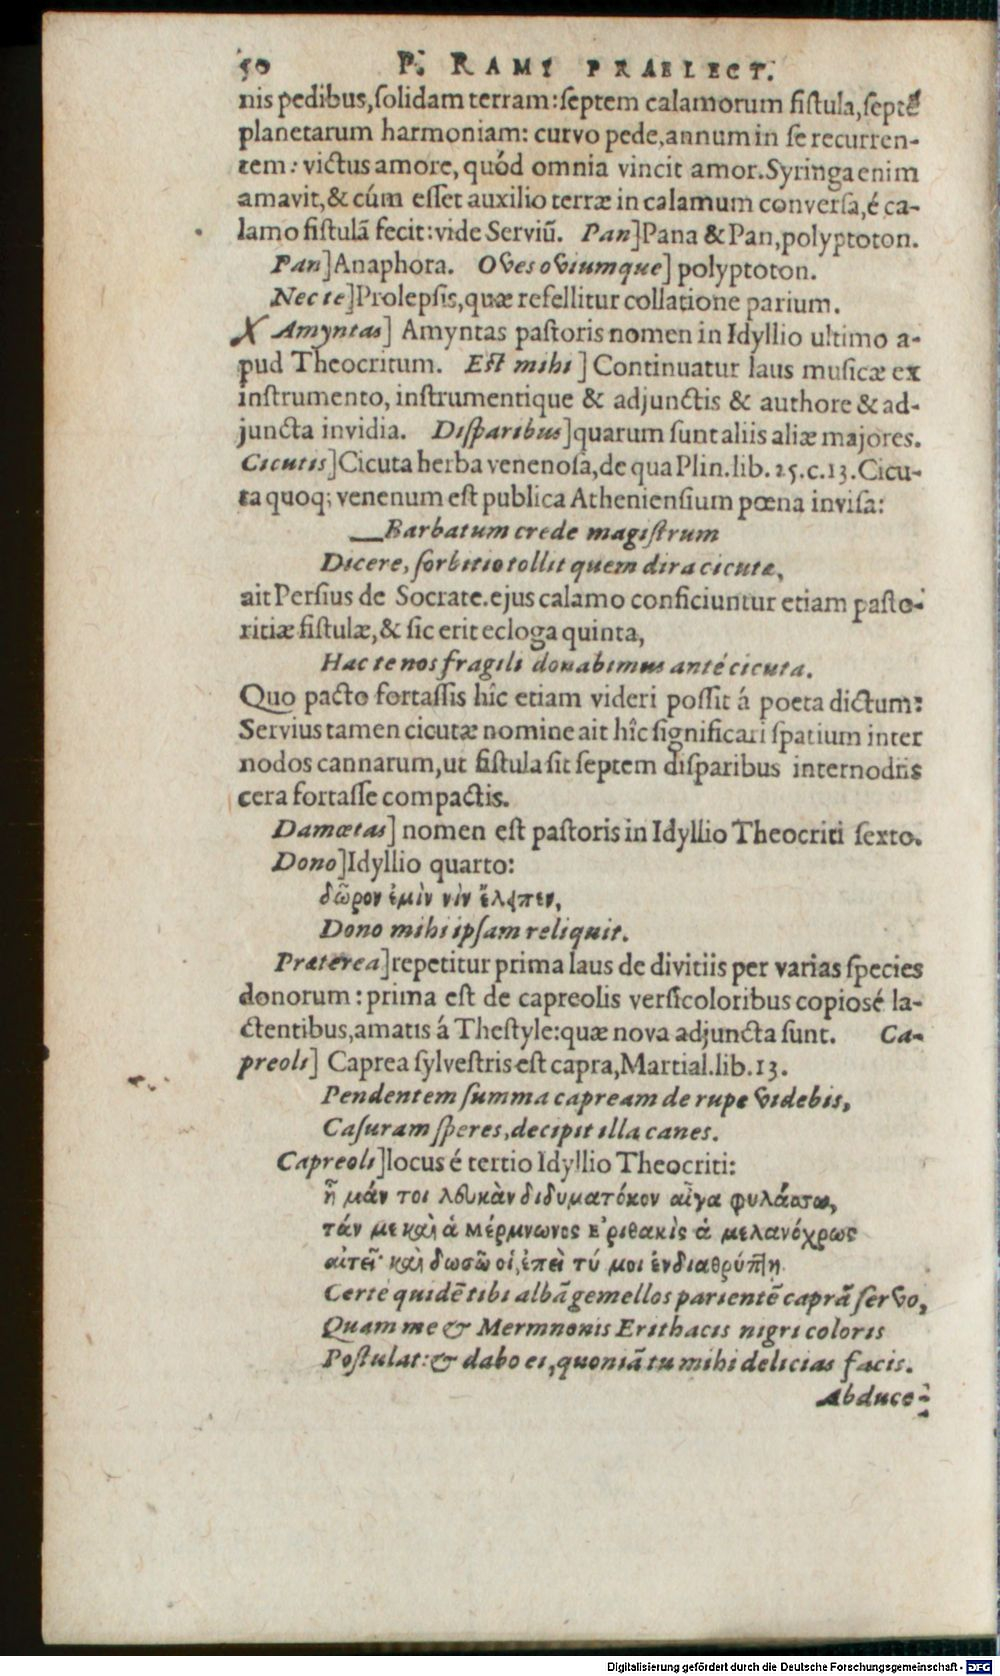 50 P. RAMI PRAELECT.
nis pedibus,ſolidam terram:ſeptem calamorum fiſtula,ſeptẽ
planetarum harmoniam: curvo pede,annum in ſe recurren-
tem: victus amore, quód omnia vincit amor.Syringa enim
amavit,& cúm eſſet auxilio terræ in calamum converſa,é ca-
lamo fiſtulã fecit:vide Serviũ. Pan]Pana & Pan,polyptoton.
Pan]Anaphora. Oves oviumque] polyptoton.
Nec te]Prolepſis,quæ refellitur collatione parium.
Amyntas] Amyntas paſtoris nomen in Idyllio ultimo a-
pud Theocritum. Eſt mihi] Continuatur laus muſicæ ex
inſtrumento, inſtrumentique & adjunctis & authore & ad-
juncta invidia. Diſparibus]quarum ſunt aliis aliæ majores.
Cicutis]Cicuta herba venenoſa,de qua Plin.lib.25.c.13.Cicu-
ta quoq; venenum eſt publica Athenienſium pœna inviſa:
__Barbatum crede magiſtrum
Dicere, ſorbitio tollit quem dira cicutæ,
ait Perſius de Socrate.ejus calamo conficiuntur etiam paſto-
ritiæ fiſtulæ,& ſic erit ecloga quinta,
Hac te nos fragili donabimus anté cicuta.
Quo pacto fortaſſis hîc etiam videri poſſit á poeta dictum:
Servius tamen cicutæ nomine ait hîc ſignificari ſpatium inter
nodos cannarum,ut fiſtula ſit ſeptem diſparibus internodiis
cera fortaſſe compactis.
Damœtas] nomen eſt paſtoris in Idyllio Theocriti ſexto.
Dono]Idyllio quarto:
δῶρον ἐμὶν νὶν ἔλειπεν,
Dono mihi ipſam reliquit.
Præterea]repetitur prima laus de divitiis per varias ſpecies
donorum: prima eſt de capreolis verſicoloribus copiosé la-
ctentibus,amatis á Theſtyle:quæ nova adjuncta ſunt. Ca-
preoli] Caprea ſylveſtris eſt capra,Martial.lib.13.
Pendentem ſumma capream de rupe videbis,
Caſuram ſperes,decipit illa canes.
Capreoli]locus é tertio Idyllio Theocriti:
ἦ μάν τοι λευκὰν διδυματόκον αἶγα φυλάσσω,
τάν με καὶ ἁ Μέρμνωνος Ἐριθακὶς ἁ μελανόχρως
αἰτεῖ· καὶ δωσῶ οἱ, ἐπεὶ τύ μοι ἐνδιαθρύπτῃ
Certe quidẽ tibi albã gemellos parientẽ caprã ſervo,
Quam me & Mermnonis Erithacis nigri coloris
Poſtulat: & dabo ei,quoniã tu mihi delicias facis.
Abduco-
Digitalisierung gefördert durch die Deutsche Forschungsgemeinschaft - DFG